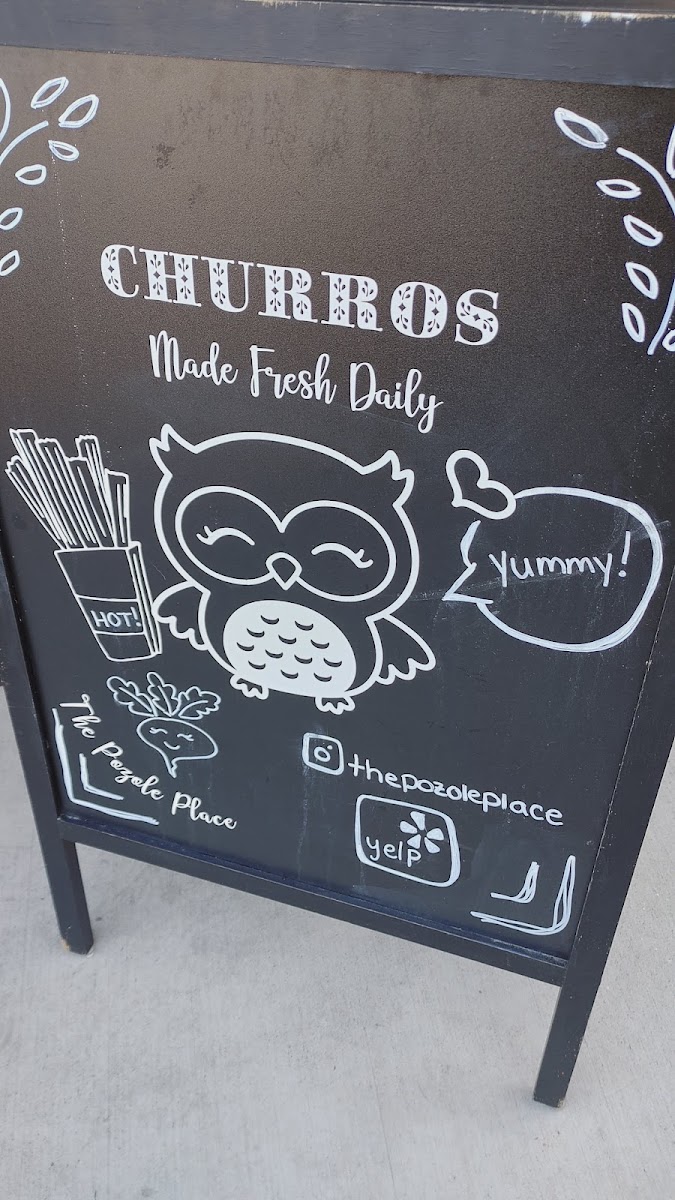 CHURROS
Made Fresh Daily
yummy!
HOT!
The Pozole Place
thepozoleplace
yelp